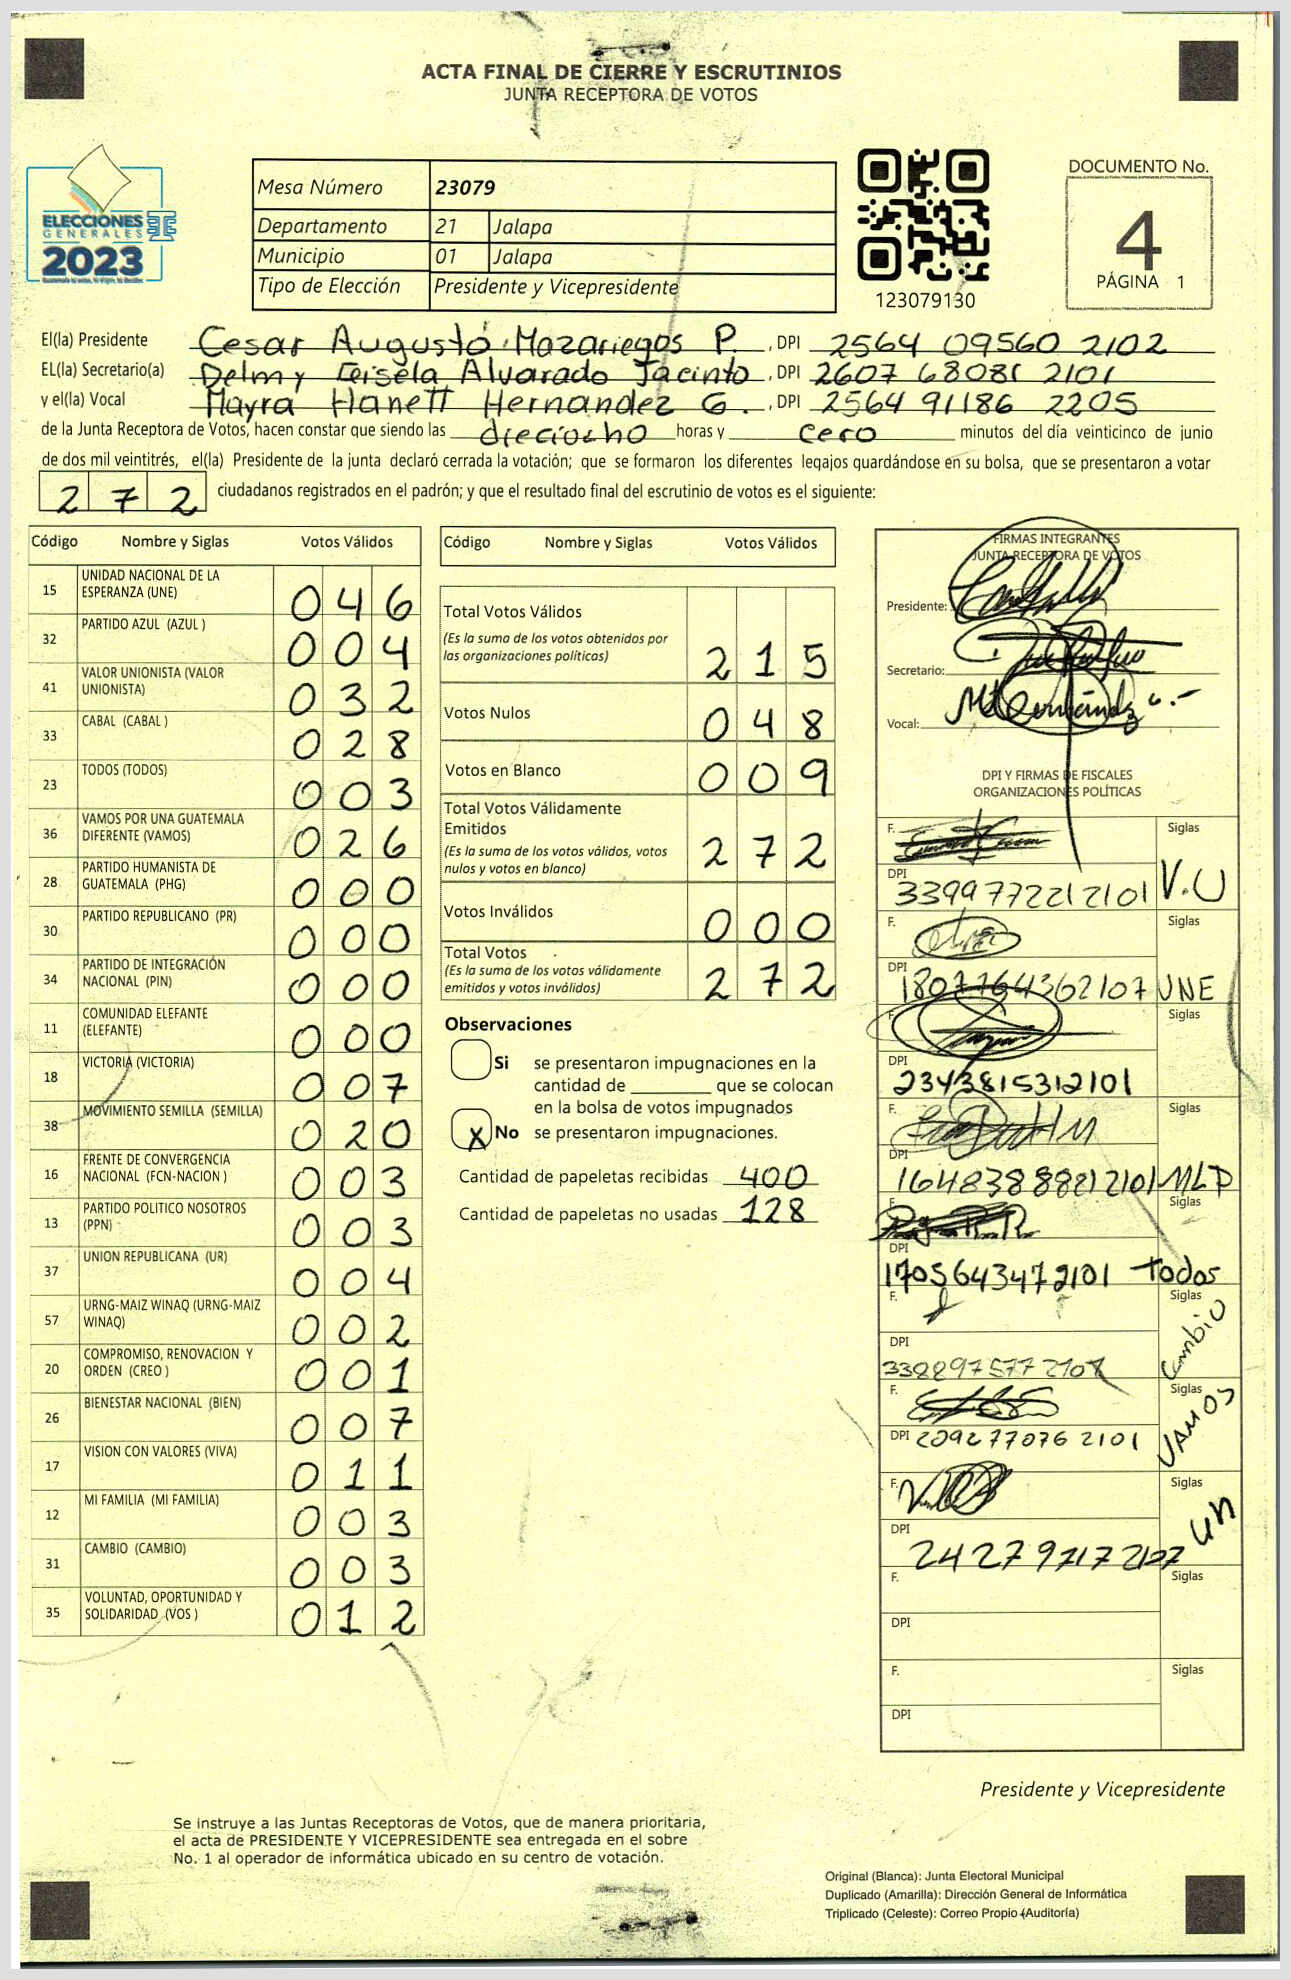 ACTA FINAL DE CIERRE Y ESCRUTINIOS
JUNTA RECEPTORA DE VOTOS
ELECCIONES
GENERALES
2023
Mesa Número 23079
Departamento 21 Jalapa
Municipio 01 Jalapa
Tipo de Elección Presidente y Vicepresidente
123079130
DOCUMENTO No.
4
PÁGINA 1
El(la) Presidente Cesar Augusto Mazariegos P. , DPI 2564 09560 2102
EL(la) Secretario(a) Delmy Alvarado Jacinto , DPI 2607 68081 2101
y el(la) Vocal Mayra Hanett Hernandez G. , DPI 2564 91186 2205
de la Junta Receptora de Votos, hacen constar que siendo las dieciocho horas y cero minutos del día veinticinco de junio
de dos mil veintitrés, el(la) Presidente de la junta declaró cerrada la votación; que se formaron los diferentes legajos guardándose en su bolsa, que se presentaron a votar
272 ciudadanos registrados en el padrón; y que el resultado final del escrutinio de votos es el siguiente:
Código Nombre y Siglas Votos Válidos
15 UNIDAD NACIONAL DE LA ESPERANZA (UNE) 046
32 PARTIDO AZUL (AZUL ) 004
41 VALOR UNIONISTA (VALOR UNIONISTA) 032
33 CABAL (CABAL ) 028
23 TODOS (TODOS) 003
36 VAMOS POR UNA GUATEMALA DIFERENTE (VAMOS) 026
28 PARTIDO HUMANISTA DE GUATEMALA (PHG) 000
30 PARTIDO REPUBLICANO (PR) 000
34 PARTIDO DE INTEGRACIÓN NACIONAL (PIN) 000
11 COMUNIDAD ELEFANTE (ELEFANTE) 000
18 VICTORIA (VICTORIA) 007
38 MOVIMIENTO SEMILLA (SEMILLA) 020
16 FRENTE DE CONVERGENCIA NACIONAL (FCN-NACION ) 003
13 PARTIDO POLITICO NOSOTROS (PPN) 003
37 UNION REPUBLICANA (UR) 004
57 URNG-MAIZ WINAQ (URNG-MAIZ WINAQ) 002
20 COMPROMISO, RENOVACION Y ORDEN (CREO ) 001
26 BIENESTAR NACIONAL (BIEN) 007
17 VISION CON VALORES (VIVA) 011
12 MI FAMILIA (MI FAMILIA) 003
31 CAMBIO (CAMBIO) 003
35 VOLUNTAD, OPORTUNIDAD Y SOLIDARIDAD (VOS ) 012
Código Nombre y Siglas Votos Válidos
Total Votos Válidos 215
(Es la suma de los votos obtenidos por
las organizaciones políticas)
Votos Nulos 048
Votos en Blanco 009
Total Votos Válidamente
Emitidos 272
(Es la suma de los votos válidos, votos
nulos y votos en blanco)
Votos Inválidos 000
Total Votos 272
(Es la suma de los votos válidamente
emitidos y votos inválidos)
Observaciones
Si se presentaron impugnaciones en la
cantidad de ________ que se colocan
en la bolsa de votos impugnados
X No se presentaron impugnaciones.
Cantidad de papeletas recibidas 400
Cantidad de papeletas no usadas 128
FIRMAS INTEGRANTES
JUNTA RECEPTORA DE VOTOS
Presidente:
Secretario:
Vocal:
DPI Y FIRMAS DE FISCALES
ORGANIZACIONES POLÍTICAS
F. Siglas
DPI 3399772212101 V.U
F. Siglas
DPI 1807764362107 UNE
F. Siglas
DPI 2343815312101
F. Siglas
DPI 1648388812101 MLP
F. Siglas
DPI 1705643472101 Todos
F. Siglas
DPI Cambio
F. Siglas
DPI 2092770762101 VAMOS
F. Siglas
DPI 242797172107
F. Siglas
DPI
F. Siglas
DPI
Presidente y Vicepresidente
Se instruye a las Juntas Receptoras de Votos, que de manera prioritaria,
el acta de PRESIDENTE Y VICEPRESIDENTE sea entregada en el sobre
No. 1 al operador de informática ubicado en su centro de votación.
Original (Blanca): Junta Electoral Municipal
Duplicado (Amarilla): Dirección General de Informática
Triplicado (Celeste): Correo Propio (Auditoría)